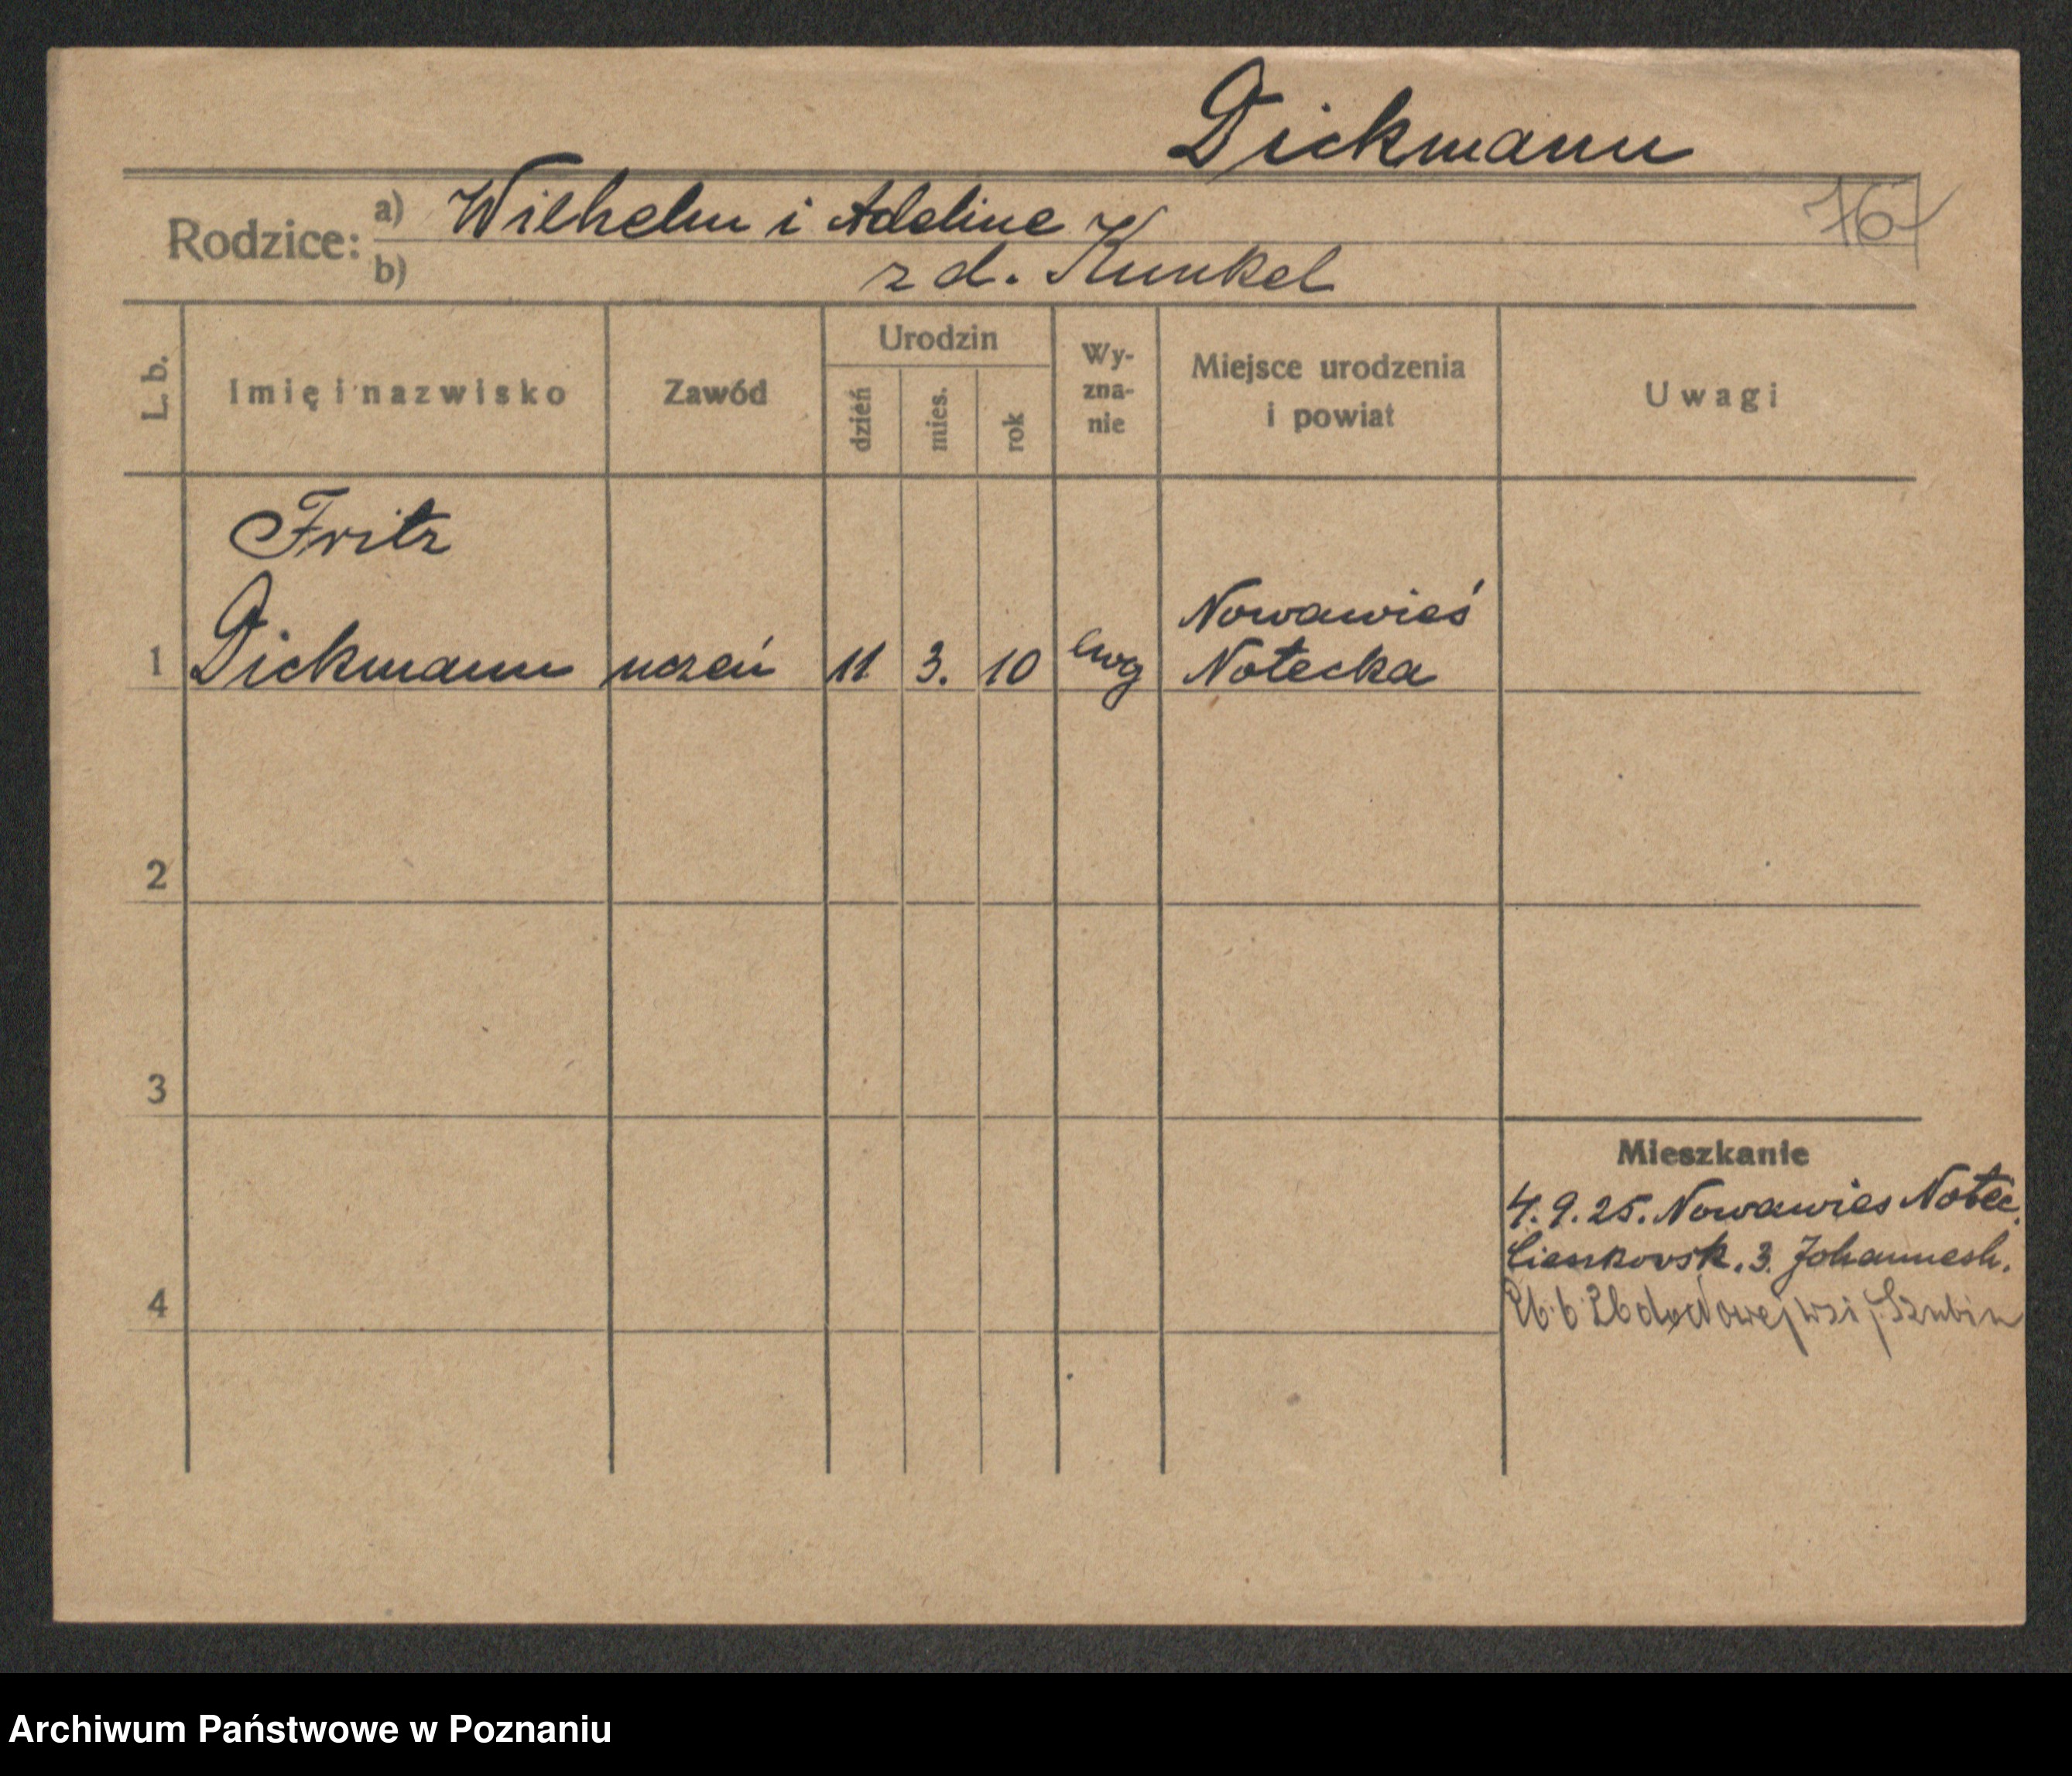 Dickmann
Rodzice: a) Wilhelm i Adeline
b) z d. Kunkel
167
L. b. Imię i nazwisko Zawód Urodzin dzień mies. rok Wy-zna-nie Miejsce urodzenia i powiat Uwagi
Fritz
Nowawieś
1 Dickmann uczeń 11 3. 10 ewg Notecka
2
3
Mieszkanie
4. 9. 25. Nowawies Noteć.
Cienkowsk. 3. Johannesh.
4
26. 6 26 do Nowej wsi p. Szubin
Archiwum Państwowe w Poznaniu